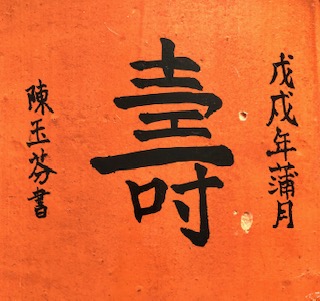 戊戌年蒲月
壽
陳玉芬書